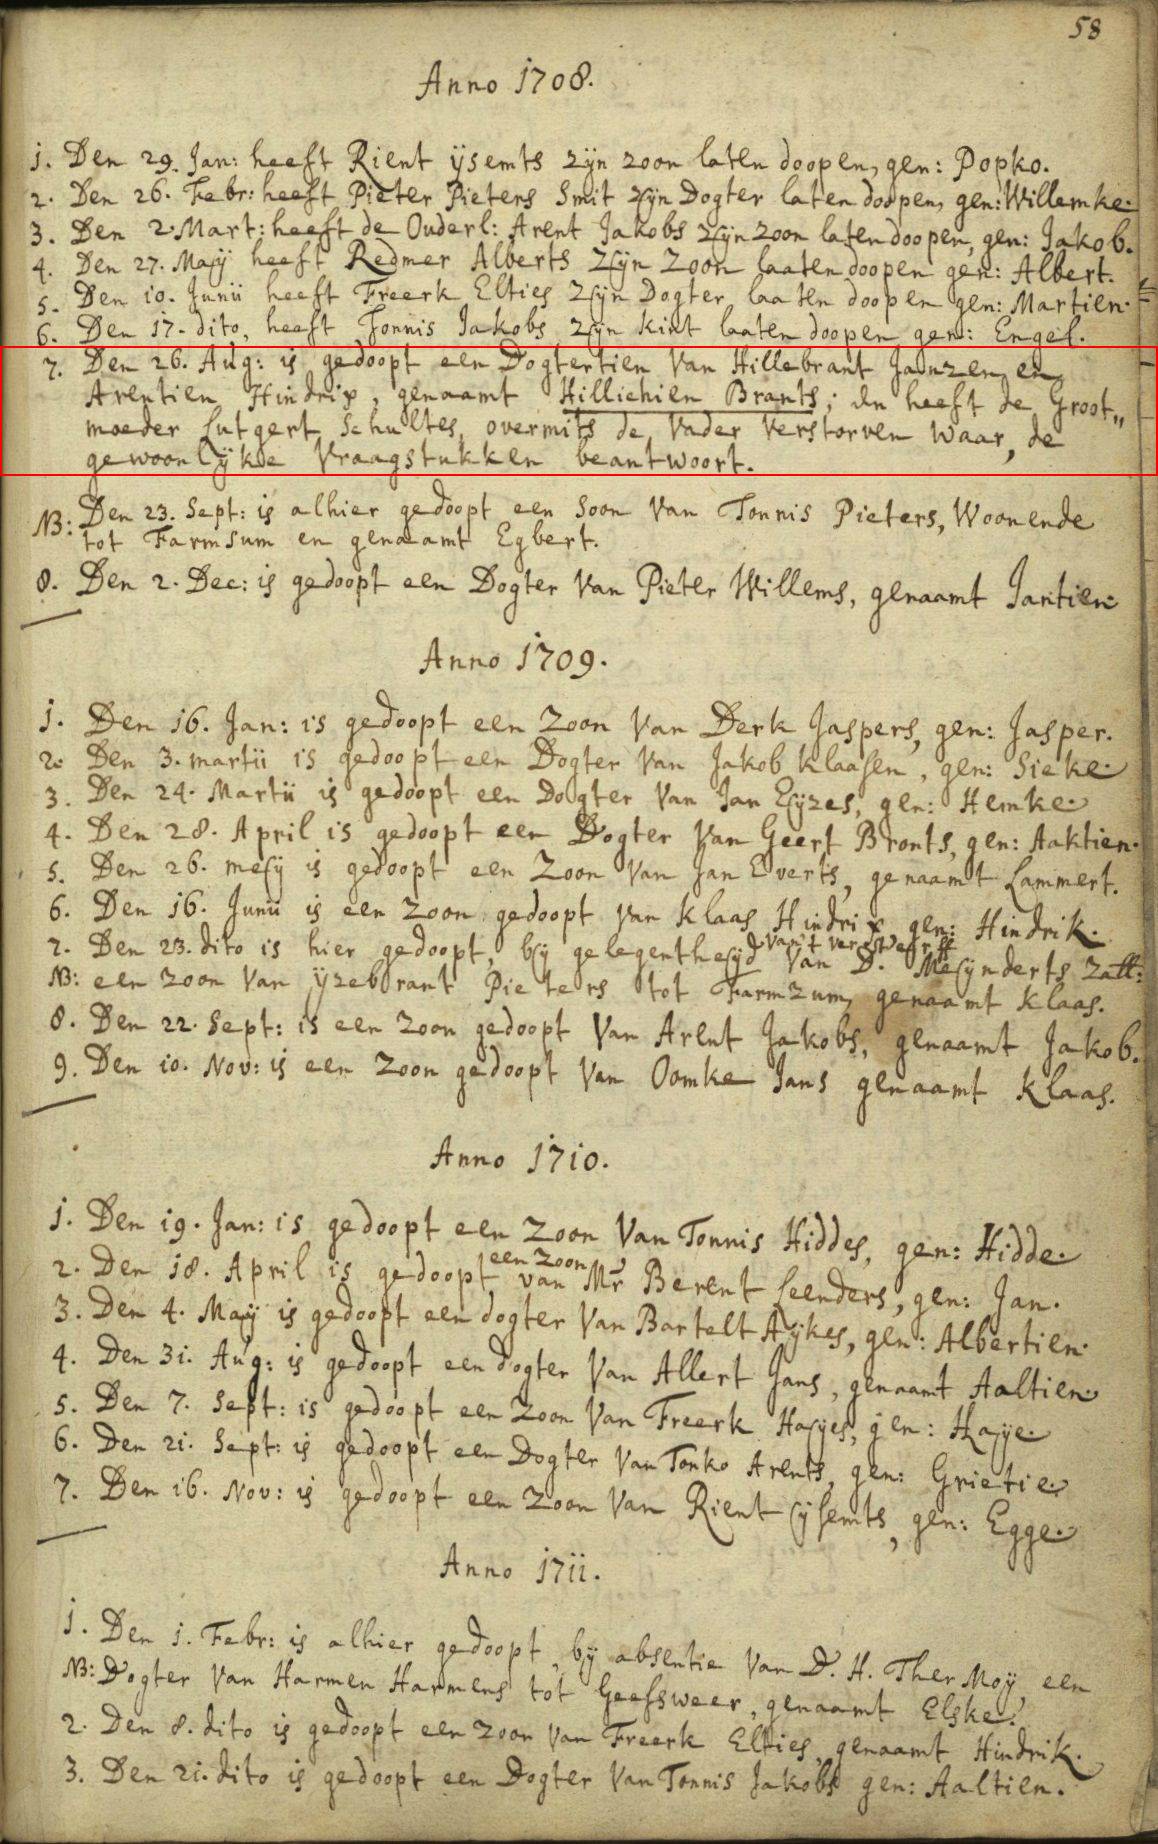 58
Anno 1708.
1. Den 29. Jan: heeft Rient ÿsemts zÿn zoon laten doopen, gen: Popko.
2. Den 26. Febr: heeft Pieter Pieters Smit zÿn Dogter laten doopen, gen: Willemke.
3. Den 2. Mart: heeft de Ouderl: Arent Jakobs zÿn zoon laten doopen, gen: Jakob.
4. Den 27. Maÿ heeft Redmer Alberts zÿn zoon laaten doopen gen: Albert.
5. Den 10. Junii heeft Freerk Elties zÿn Dogter laaten doopen gen: Martien.
6. Den 17. dito, heeft Tonnis Jakobs zÿn kint laaten doopen gen: Engel.
7. Den 26. Aug: is gedoopt een Dogtertien Van Hillebrant Janzen en
Arentien Hindrix, genaamt Hillichien Brants; en heeft de Groot„
moeder Lutgert Schultes, overmits de Vader Verstorven waar, de
gewoonlÿkde Vraagstukken beantwoort.
NB: Den 23. Sept: is alhier gedoopt een Soon Van Tonnis Pieters, Woonende
tot Farmsum en genaamt Egbert.
8. Den 2. Dec: is gedoopt een Dogter Van Pieter Willems, genaamt Jantien.
Anno 1709.
1. Den 16. Jan: is gedoopt een Zoon Van Derk Jaspers, gen: Jasper.
2. Den 3. martii is gedoopt een Dogter Van Jakob Klaasen, gen: Sieke.
3. Den 24. Martii is gedoopt een Dogter Van Jan Eÿzes, gen: Hemke.
4. Den 28. April is gedoopt een Dogter Van Geert Bronts, gen: Aaktien.
5. Den 26. meÿ is gedoopt een Zoon Van Jan Everts, genaamt Lammert.
6. Den 16. Junii is een Zoon gedoopt Van Klaas Hindrix, gen: Hindrik.
7. Den 23. dito is hier gedoopt, bÿ gelegentheÿd Van D. Meÿnderts
NB: een zoon Van ÿzebrant Pieters tot Farmzum, genaamt Klaas.
8. Den 22. Sept: is een zoon gedoopt Van Arent Jakobs, genaamt Jakob.
9. Den 10. Nov: is een zoon gedoopt Van Oomke Jans genaamt Klaas.
Anno 1710.
1. Den 19. Jan: is gedoopt een Zoon Van Tonnis Hiddes, gen: Hidde.
een zoon
2. Den 18. April is gedoopt van Mr Berent Leenders, gen: Jan.
3. Den 4. Maÿ is gedoopt een dogter Van Bartelt Aÿkes, gen: Albertien.
4. Den 31. Aug: is gedoopt een dogter Van Allert Jans, genaamt Aaltien.
5. Den 7. Sept: is gedoopt een Zoon Van Freerk Haÿes, gen: Haÿe.
6. Den 21. Sept: is gedoopt een Dogter Van Tonko Arents, gen: Grietie.
7. Den 16. Nov: is gedoopt een Zoon Van Rient ÿsemts, gen: Egge.
Anno 1711.
1. Den 1. Febr: is alhier gedoopt, bÿ absentie Van D. H. Ther Moÿ, een
NB: Dogter Van Harmen Harmens tot Geefsweer, genaamt Elske.
2. Den 8. dito is gedoopt een zoon Van Freerk Elties, genaamt Hindrik.
3. Den 21. dito is gedoopt een Dogter Van Tonnis Jakobs gen: Aaltien.